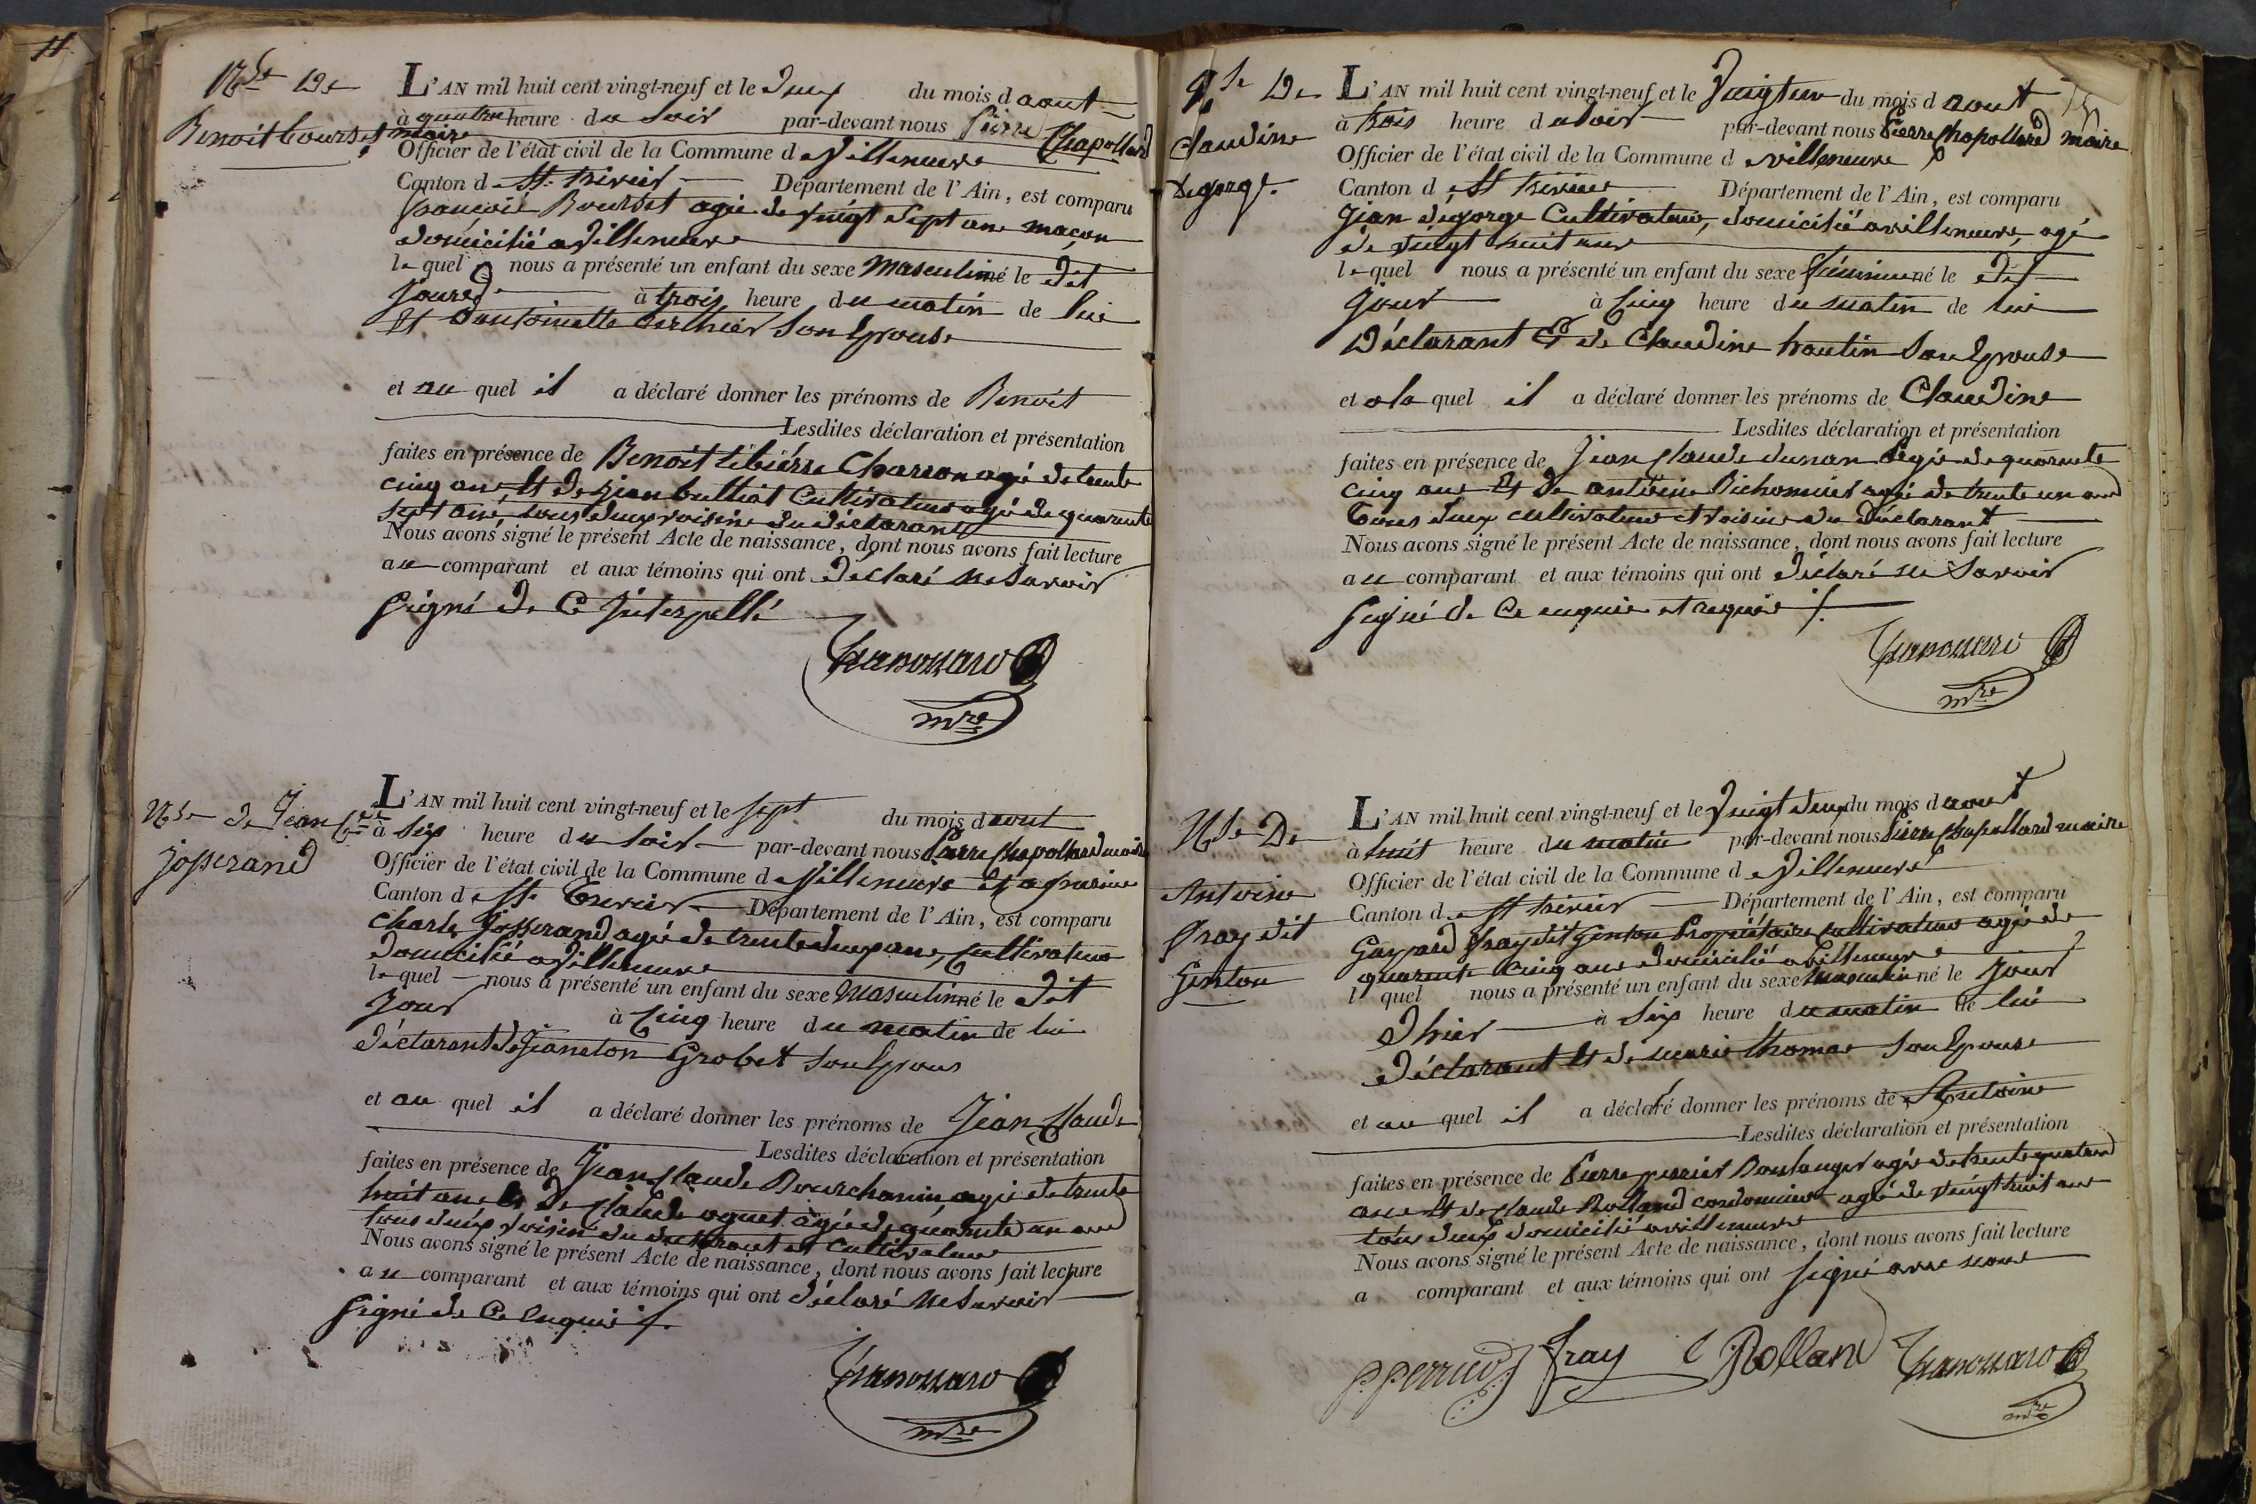 11
Nce De
Benoit Bourdet
L'AN mil huit cent vingt-neuf et le Deux du mois d aout
à quatre heure du soir par-devant nous Pierre Chapollard
maire
Officier de l'état civil de la Commune de Villeneuve
Canton de St. trivier Département de l'Ain, est comparu
françois Bourdet agé de vingt sept ans maçon
domicilié a Villeneuve
lequel nous a présenté un enfant du sexe masculin né le Dit
jour à trois heure du matin de lui
Et d'antoinette berthier son Epouse
et au quel il a déclaré donner les prénoms de Benoit
Lesdites déclaration et présentation
faites en présence de Benoit Charron agé de trente
cinq ans, Et de jean bulliat Cultivateur agé de quarente
sept ans, tous deux voisins du déclarant
Nous avons signé le présent Acte de naissance, dont nous avons fait lecture
au comparant et aux témoins qui ont déclaré ne Savoir
Signé de Ce Interpellé
mre
Nce de Jean Cde
Josserand
L'AN mil huit cent vingt-neuf et le sept du mois d aout
à Six heure du soir par-devant nous Pierre Chapollard maire
Officier de l'état civil de la Commune de Villeneuve
Canton de St. Trivier Département de l'Ain, est comparu
Charle Josserand agé de trente deux ans, Cultivateur
domicilié a Villeneuve
lequel nous a présenté un enfant du sexe Masculin né le Dit
jour à Cinq heure du matin de lui
déclarant de Jeaneton Grobet son Epous
et au quel il a déclaré donner les prénoms de Jean Claude
Lesdites déclaration et présentation
faites en présence de Jean Claude Bourchanin agé de trente
huit ans Et de Claude oguet agé de quarente un ans
tous deux voisins du déclarant et Cultivateur
Nous avons signé le présent Acte de naissance, dont nous avons fait lecture
au comparant et aux témoins qui ont déclaré ne Savoir
Signé de Ce Enquis /.
mre
Nce De
Claudine
Degorge
L'AN mil huit cent vingt-neuf et le Vingt un du mois d aout
à trois heure du soir par-devant nous Pierre Chapollard maire
Officier de l'état civil de la Commune de villeneuve
Canton de St trivier Département de l'Ain, est comparu
Jean dégorge Cultivateur, domicilié a villeneuve, agé
de vingt huit ans
lequel nous a présenté un enfant du sexe féminin né le Dit
Jour à Cinq heure du matin de lui
Déclarant Et de Claudine trontin son Epouse
et a la quel il a déclaré donner les prénoms de Claudine
Lesdites déclaration et présentation
faites en présence de Jean Claude dunand agé de quarente
cinq ans Et de antoine Bichonnier agé de trente un ans
tous deux cultivateur et voisins du Déclarant
Nous avons signé le présent Acte de naissance, dont nous avons fait lecture
au comparant et aux témoins qui ont déclaré ne Savoir
Signé de Ce enquis et requis /.
mre
Nce De
Antoine
fray dit
Genton
L'AN mil huit cent vingt-neuf et le Vingt deux du mois d aout
à huit heure du matin par-devant nous Pierre Chapollard maire
Officier de l'état civil de la Commune de Villeneuve
Canton de St trivier Département de l'Ain, est comparu
Gaspard fray dit Genton Propriétaire Cultivateur agé de
quarente cinq ans domicilié a Villeneuve
l quel nous a présenté un enfant du sexe Masculin né le jour
D'hier à Six heure du matin de lui
déclarant Et de marie thomas son Epouse
et au quel il a déclaré donner les prénoms de Antoine
Lesdites déclaration et présentation
faites en présence de Pierre perrier Boulanger agé de trente quatre
ans Et de Claude Rolland cordonnier agé de vingt huit ans
tous deux domicilié a villeneuve
Nous avons signé le présent Acte de naissance, dont nous avons fait lecture
a comparant et aux témoins qui ont signé avec nous
P perrier fray C Rolland
mre